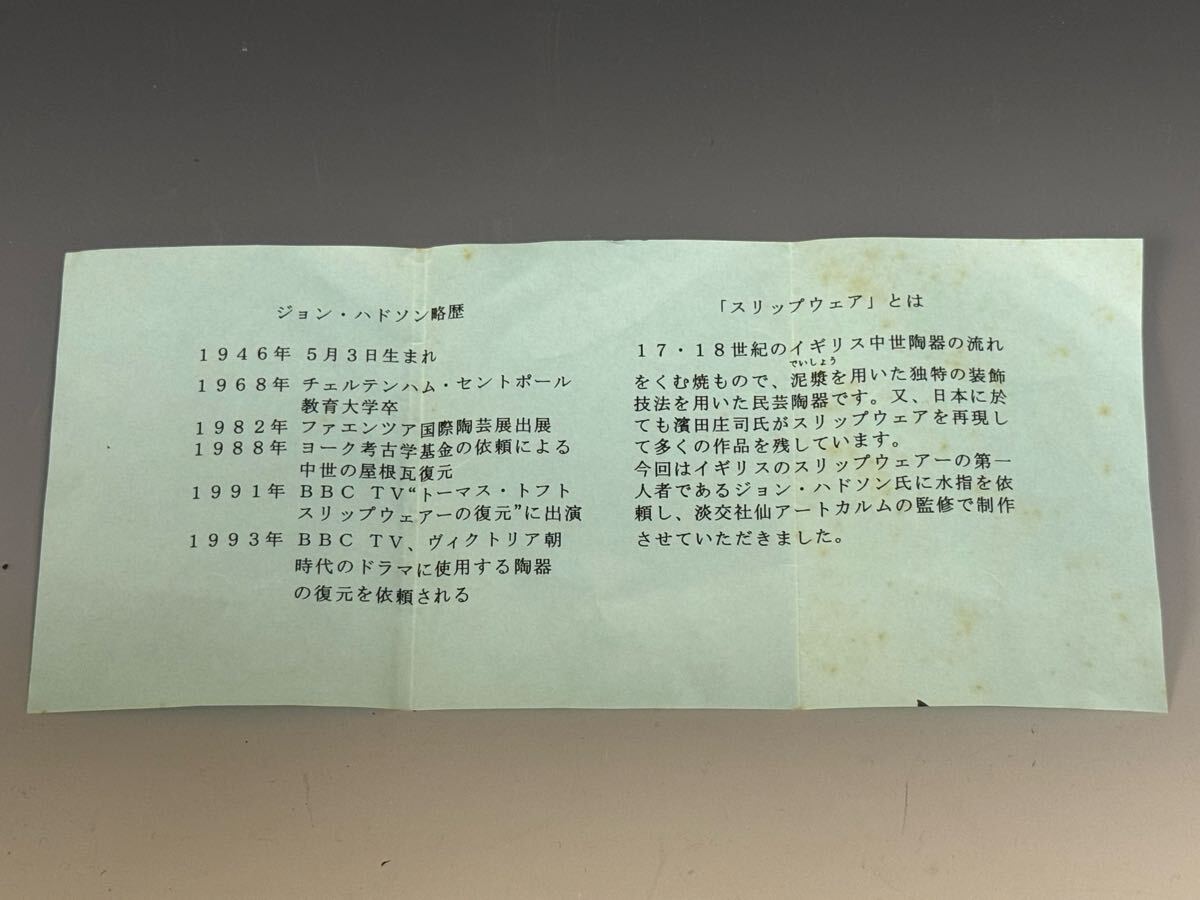 ジョン・ハドソン略歴
1946年 5月3日生まれ
1968年 チェルテンハム・セントポール
教育大学卒
1982年 ファエンツア国際陶芸展出展
1988年 ヨーク考古学基金の依頼による
中世の屋根瓦復元
1991年 BBC TV“トーマス・トフト
スリップウェアーの復元”に出演
1993年 BBC TV、ヴィクトリア朝
時代のドラマに使用する陶器
の復元を依頼される
「スリップウェア」とは
17・18世紀のイギリス中世陶器の流れ
でいしょう
をくむ焼もので、泥漿を用いた独特の装飾
技法を用いた民芸陶器です。又、日本に於
ても濱田庄司氏がスリップウェアを再現し
て多くの作品を残しています。
今回はイギリスのスリップウェアーの第一
人者であるジョン・ハドソン氏に水指を依
頼し、淡交社仙アートカルムの監修で制作
させていただきました。